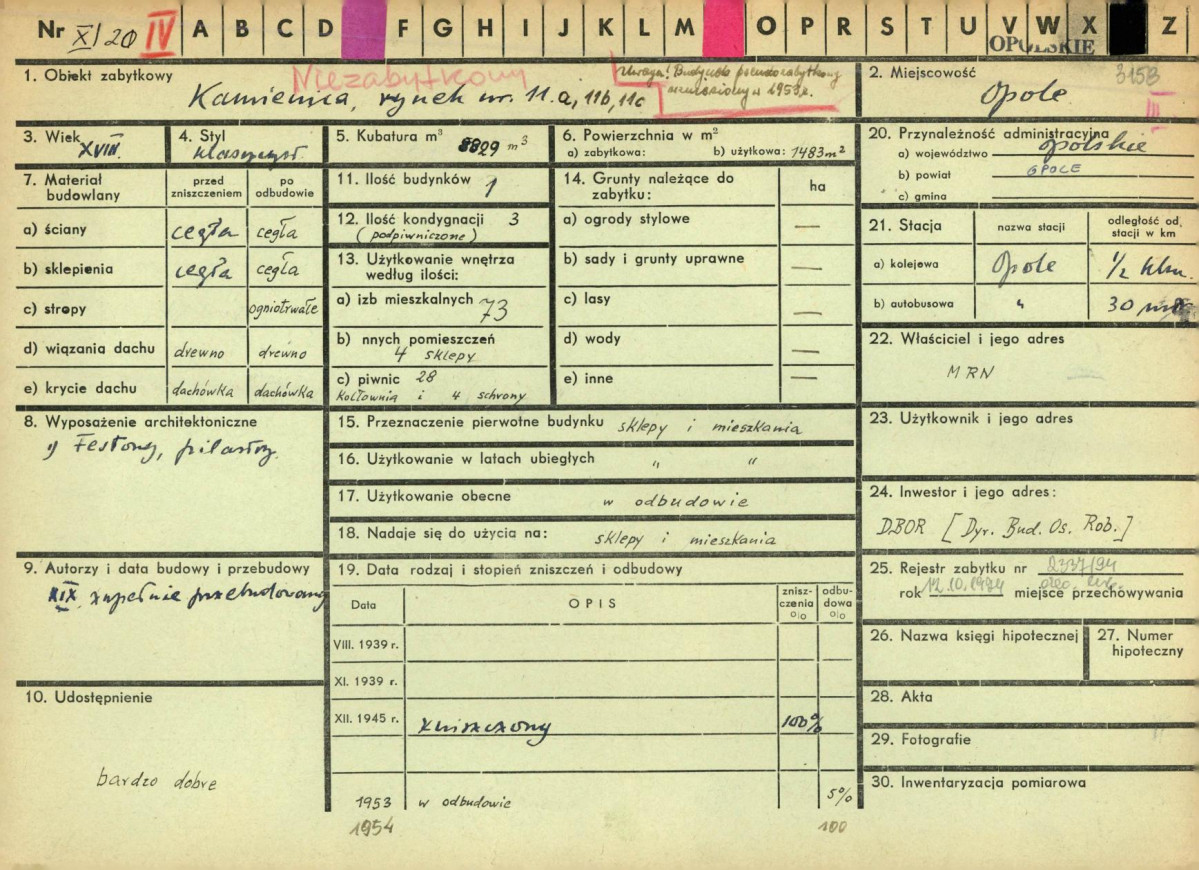 Nr XI/20 IV A B C D F G H I J K L M O P R S T U V W X Z
OPOLSKIE
1. Obiekt zabytkowy
Niezabytkowy
Uwaga! Budynek pseudozabytkowy
wzniesiony w 1953 r.
Kamienica, rynek nr. 11.a, 11b, 11c
2. Miejscowość
3153
Opole
III
3. Wiek
XVIII.
4. Styl
klasycyst.
5. Kubatura m³ 8829 m³
6. Powierzchnia w m²
a) zabytkowa: b) użytkowa: 1483 m²
7. Materiał
budowlany
przed
zniszczeniem
po
odbudowie
a) ściany cegła cegła
b) sklepienia cegła cegła
c) stropy ogniotrwałe
d) wiązania dachu drewno drewno
e) krycie dachu dachówka dachówka
8. Wyposażenie architektoniczne
Festony, pilastry.
9. Autorzy i data budowy i przebudowy
XIX. zupełnie przebudowany
10. Udostępnienie
bardzo dobre
11. Ilość budynków 1
12. Ilość kondygnacji 3
(podpiwniczone)
13. Użytkowanie wnętrza
według ilości:
a) izb mieszkalnych 73
b) nnych pomieszczeń
4 sklepy
c) piwnic 28
Kotłownia i 4 schrony
14. Grunty należące do
zabytku:
ha
a) ogrody stylowe —
b) sady i grunty uprawne —
c) lasy —
d) wody —
e) inne —
15. Przeznaczenie pierwotne budynku sklepy i mieszkania
16. Użytkowanie w latach ubiegłych " "
17. Użytkowanie obecne w odbudowie
18. Nadaje się do użycia na: sklepy i mieszkania
19. Data rodzaj i stopień zniszczeń i odbudowy
Data OPIS
znisz-
czenia
o|o
odbu-
dowa
o|o
VIII. 1939 r.
XI. 1939 r.
XII. 1945 r. zniszczony 100%
1953 w odbudowie 5%
1954 100
20. Przynależność administracyjna
a) województwo opolskie
b) powiat OPOLE
c) gmina
21. Stacja
nazwa stacji
odległość od
stacji w km
a) kolejowa Opole 1/2 klm.
b) autobusowa " 30
22. Właściciel i jego adres
MRN
23. Użytkownik i jego adres
24. Inwestor i jego adres:
DBOR [Dyr. Bud. Os. Rob.]
25. Rejestr zabytku nr 2337/94
rok 12.10.1994 miejsce przechowywania
26. Nazwa księgi hipotecznej
27. Numer
hipoteczny
28. Akta
29. Fotografie
30. Inwentaryzacja pomiarowa